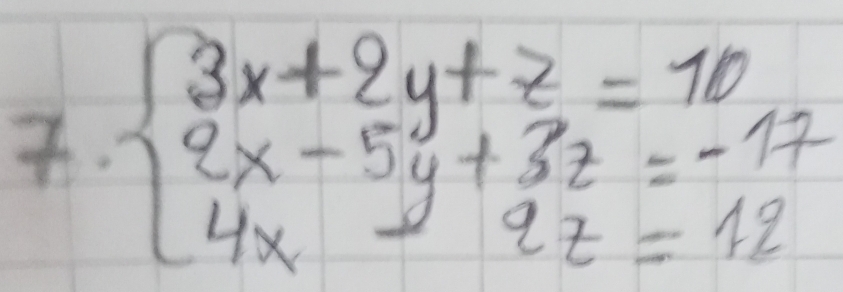 7. 3x + 2y + z = 10
2x - 5y + 3z = -17
4x - 2z = 12